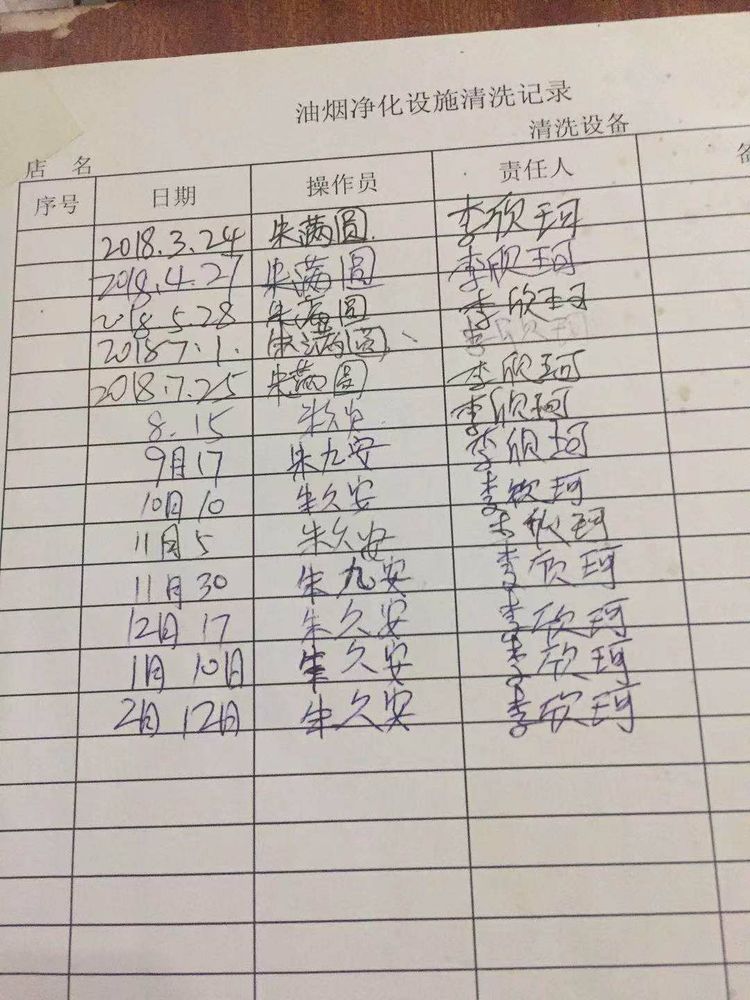 油烟净化设施清洗记录
店 名 清洗设备
序号 日期 操作员 责任人
2018.3.24 朱满圆 李欣珂
2018.4.27 朱满圆 李欣珂
2018.5.28 朱满圆 李欣珂
2018 7.1. 朱满圆 李欣珂
2018.7.25 朱满圆 李欣珂
8.15 李欣珂
9月17 朱九安 李欣珂
10月10 朱久安 李欣珂
11月5 朱久安 李欣珂
11月30 朱九安 李欣珂
12月17 朱久安 李欣珂
1月10日 朱久安 李欣珂
2月12日 朱久安 李欣珂